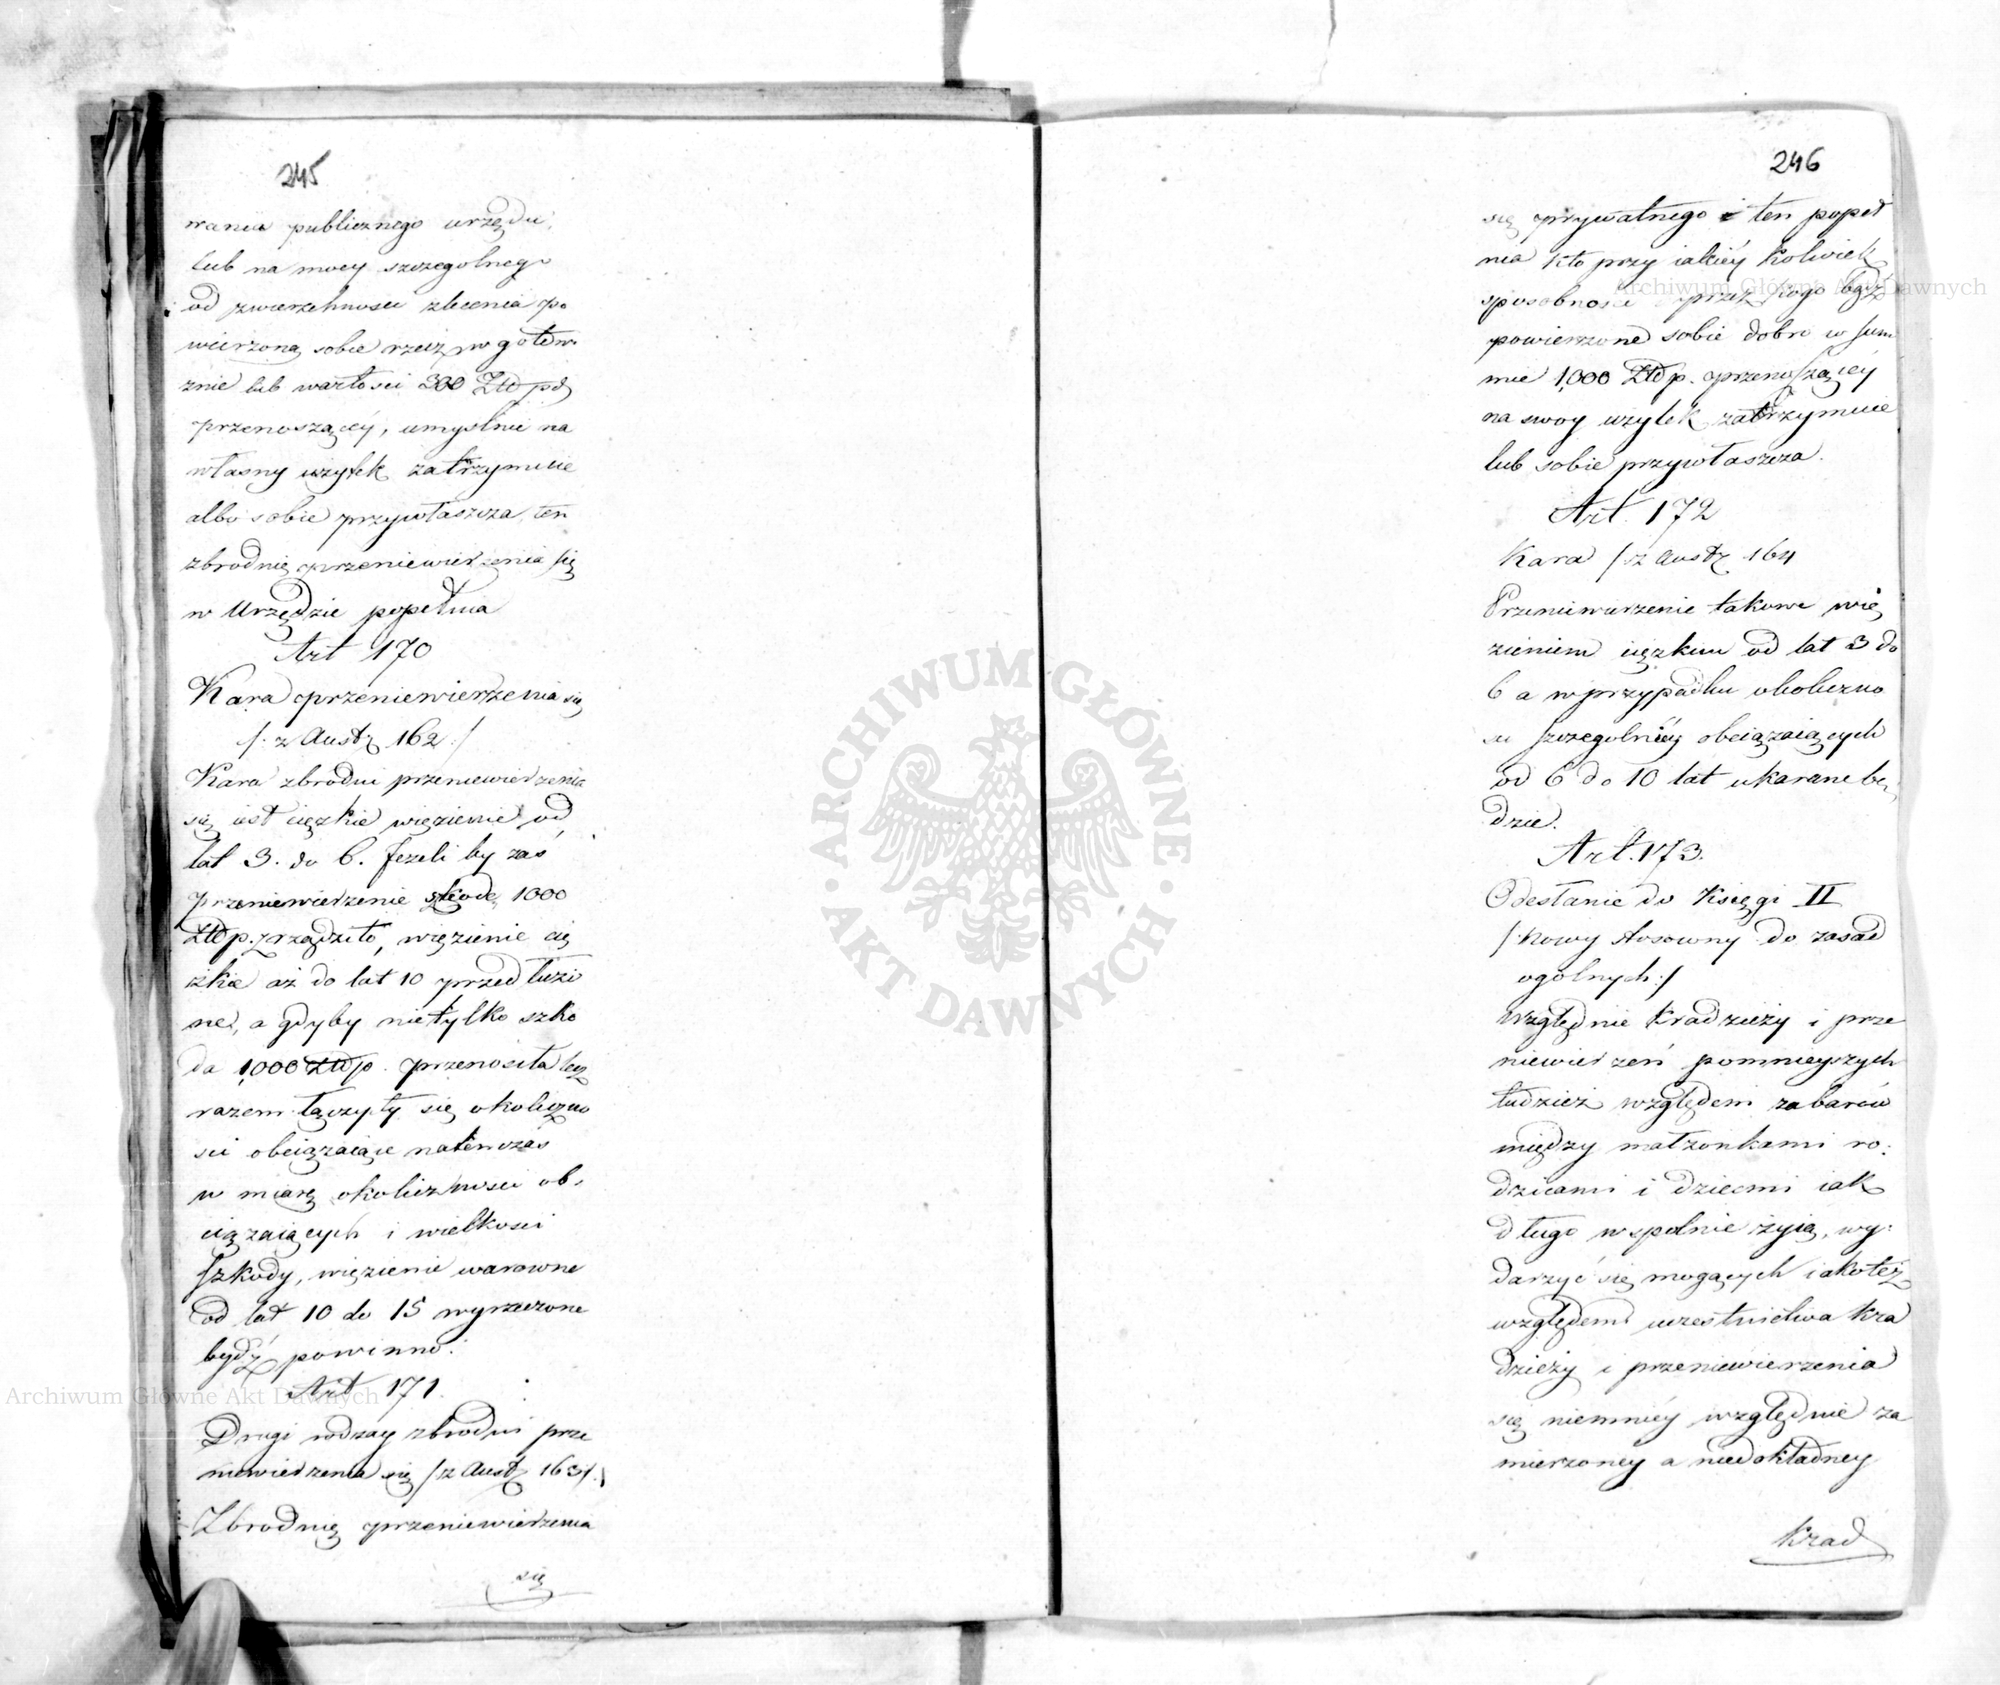 245
wania publicznego urzędu,
lub na mocy szczegolnego
od zwierzchnosci zlecenia po
wierzoną sobie rzecz w gotow
znie lub wartosci 300 Złłp
przenoszącéy, umyslnie na
własny użytek zatrzymuie
albo sobie przywłaszcza, ten
zbrodnię przeniewierzenia się
w Urzędzie popełnia
Art 170
Kara przeniewierzenia się
/: z Austr 162 :/
Kara zbrodni przeniewierzenia
się iest cięzkie więzienie od
lat 3. do 6. Jezeli by zaś
przeniewierzenie szkodę 1000
Złłp. zrządziło, więzienie cię
żkie aż do lat 10 przedłuzi
, a gdyby nietylko szko
da 1,000 Złłp. przenosiła lecz
razem łączyły się okoliczno
sci obciązaiące natenczas
w miarę okolicznosci ob-
ciązaiących i wielkosci
szkody, więzienie warowne
od lat 10 do 15 wyrzeczone
bydź powinno.
Art 171.
Drugi rodzay zbrodni prze
niewierzenia się /: z Austr 163 :/
Zbrodnię przeniewierzenia
się
246
się prywatnego i ten popeł
nia kto przy iakiéy kolwiek
sposobnosci przez kogo bądź
powierzone sobie dobro w sum
mie 1,000 Złłp. przenoszącéy
na swoy uzytek zatrzymuie
lub sobie przywłaszcza.
Art. 172
Kara /: z Austr 164
Przeniewierzenie takowe wię
zieniem cięzkim od lat 3 do
6 a w przypadku okoliczno
sci szczegolniéy obciązaiących
od 6 do 10 lat ukarane bę
dzie.
Art. 173.
Odesłanie do Księgi II
/: Nowy stosowny do zasad
ogolnych :/
Względnie kradzieży i prze
niewierzeń pomnieyszych
tudzież względem zaborów
między małzonkami ro-
dzicami i dziecmi iak
długo wspolnie żyią, wy-
darzyć się mogących iakoteż
względem uczestnictwa kra
dzieży i przeniewierzenia
się niemniéy względnie za
mierzoney a niedokładney
krad
ARCHIWUM GŁÓWNE AKT DAWNYCH
Archiwum Główne Akt Dawnych
Archiwum Główne Akt Dawnych